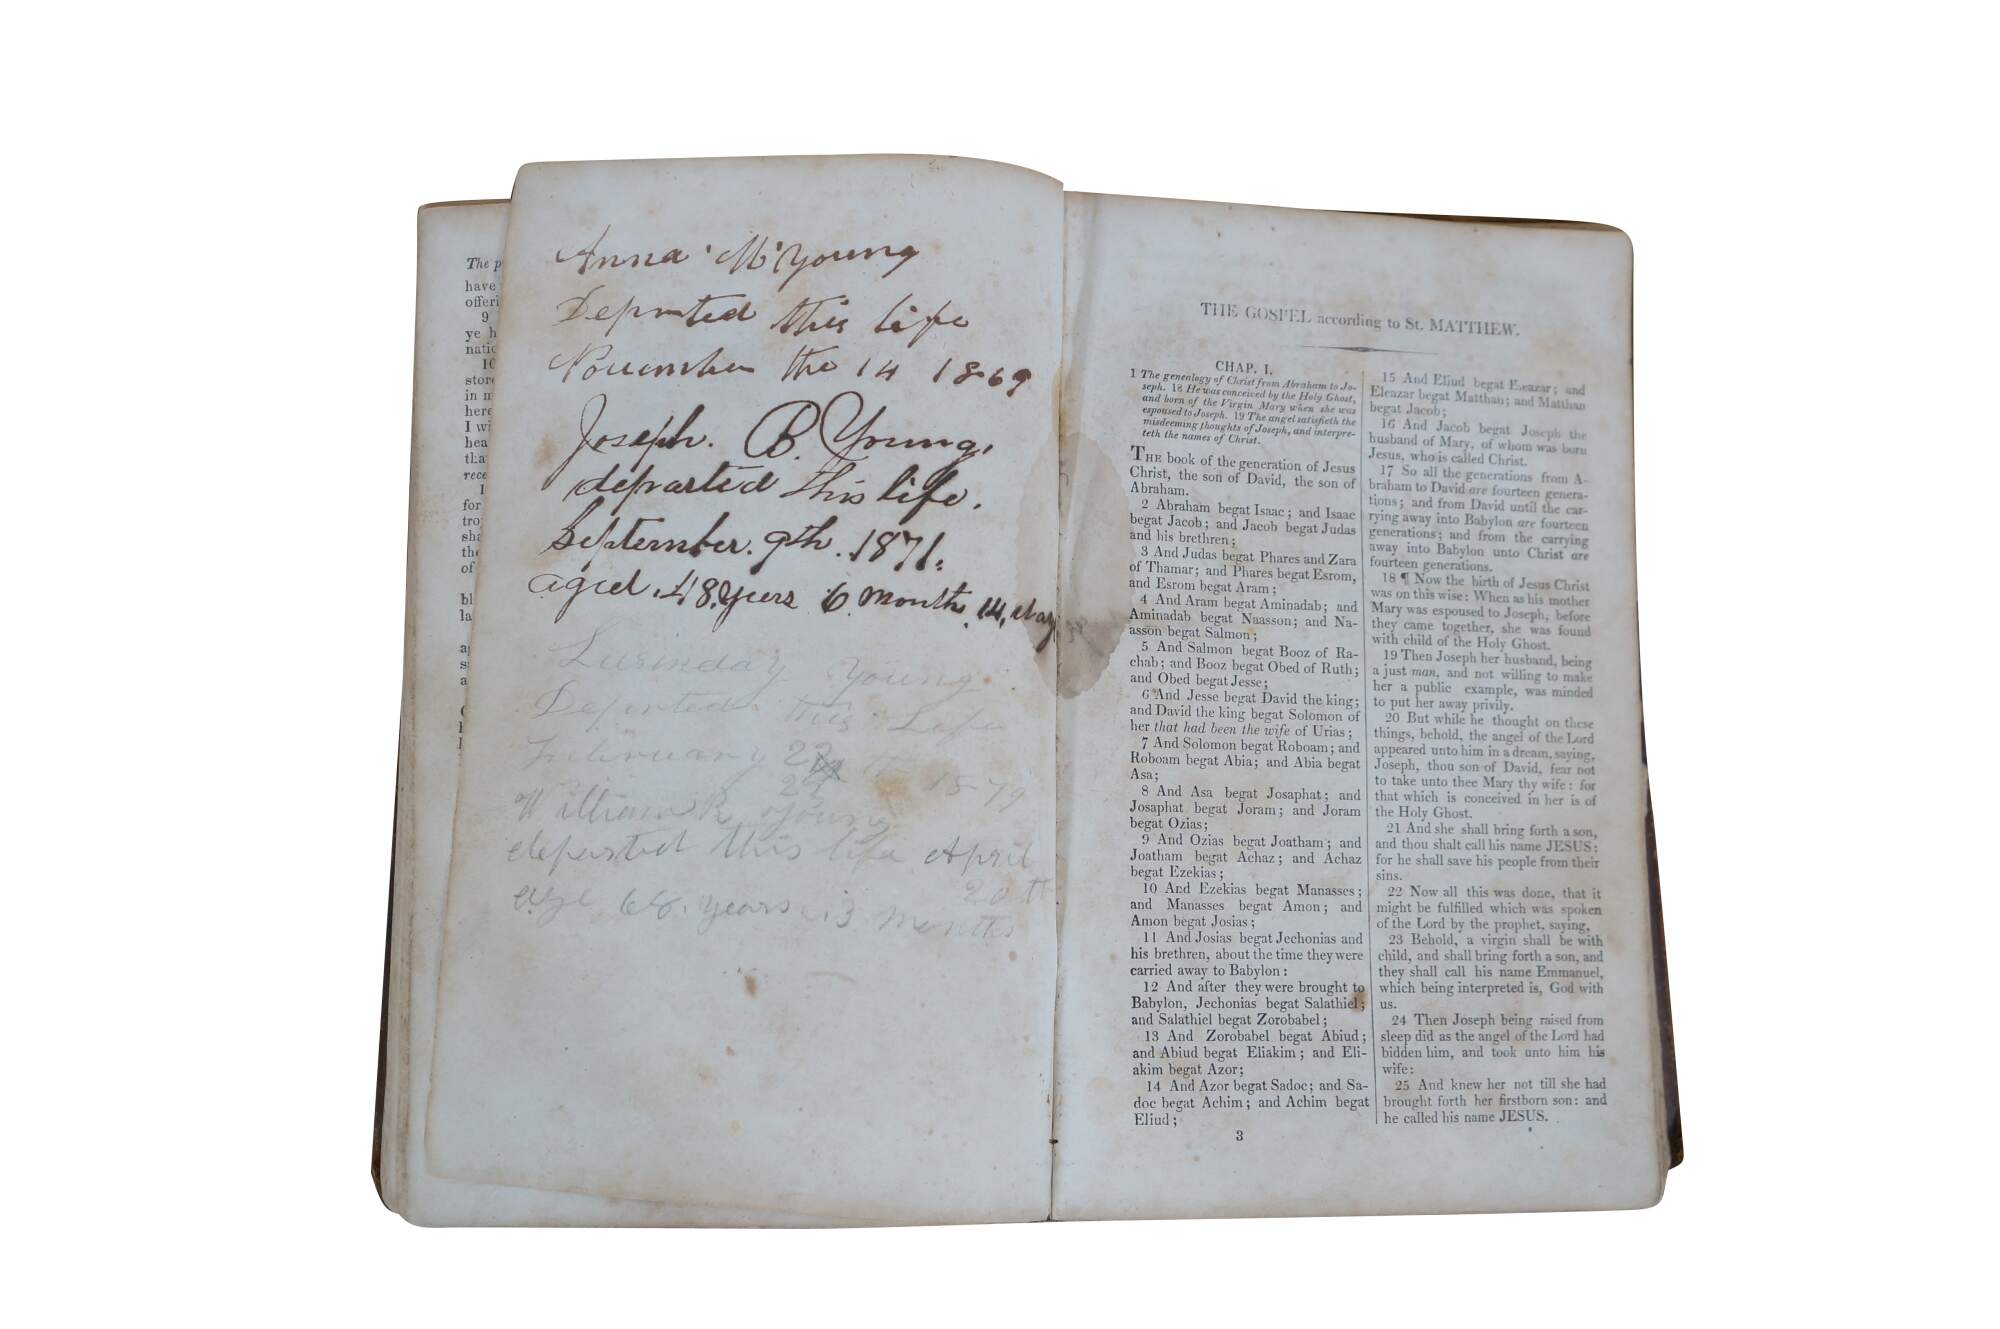 The p
have
offeri
9
ye h
natio
10
store
in m
here
I wi
hea
tha
rece
1
for
tro
sha
the
of
bl
la
Anna M Young
Departed this life
November the 14 1869
Joseph. B. Young,
departed this life.
September. 9th. 1871.
aged .48. years 6 month. 14, day
Lusinday Young
Departed this Life
February 22 th 1879
22
William R Young
departed this life April
20 th
age 68. years 3 months
THE GOSPEL according to St. MATTHEW.
CHAP. I.
1 The genealogy of Christ from Abraham to Jo-
seph. 18 He was conceived by the Holy Ghost,
and born of the Virgin Mary when she was
espoused to Joseph. 19 The angel satisfieth the
misdeeming thoughts of Joseph, and interpre-
teth the names of Christ.
THE book of the generation of Jesus
Christ, the son of David, the son of
Abraham.
2 Abraham begat Isaac; and Isaac
begat Jacob; and Jacob begat Judas
and his brethren;
3 And Judas begat Phares and Zara
of Thamar; and Phares begat Esrom,
and Esrom begat Aram;
4 And Aram begat Aminadab; and
Aminadab begat Naasson; and Na-
asson begat Salmon;
5 And Salmon begat Booz of Ra-
chab; and Booz begat Obed of Ruth;
and Obed begat Jesse;
6 And Jesse begat David the king;
and David the king begat Solomon of
her that had been the wife of Urias;
7 And Solomon begat Roboam; and
Roboam begat Abia; and Abia begat
Asa;
8 And Asa begat Josaphat; and
Josaphat begat Joram; and Joram
begat Ozias;
9 And Ozias begat Joatham; and
Joatham begat Achaz; and Achaz
begat Ezekias;
10 And Ezekias begat Manasses;
and Manasses begat Amon; and
Amon begat Josias;
11 And Josias begat Jechonias and
his brethren, about the time they were
carried away to Babylon:
12 And after they were brought to
Babylon, Jechonias begat Salathiel;
and Salathiel begat Zorobabel;
13 And Zorobabel begat Abiud;
and Abiud begat Eliakim; and Eli-
akim begat Azor;
14 And Azor begat Sadoc; and Sa-
doc begat Achim; and Achim begat
Eliud;
15 And Eliud begat Eleazar; and
Eleazar begat Matthan; and Matthan
begat Jacob;
16 And Jacob begat Joseph the
husband of Mary, of whom was born
Jesus, who is called Christ.
17 So all the generations from A-
braham to David are fourteen genera-
tions; and from David until the car-
rying away into Babylon are fourteen
generations; and from the carrying
away into Babylon unto Christ are
fourteen generations.
18 ¶ Now the birth of Jesus Christ
was on this wise: When as his mother
Mary was espoused to Joseph, before
they came together, she was found
with child of the Holy Ghost.
19 Then Joseph her husband, being
a just man, and not willing to make
her a public example, was minded
to put her away privily.
20 But while he thought on these
things, behold, the angel of the Lord
appeared unto him in a dream, saying,
Joseph, thou son of David, fear not
to take unto thee Mary thy wife: for
that which is conceived in her is of
the Holy Ghost.
21 And she shall bring forth a son,
and thou shalt call his name JESUS:
for he shall save his people from their
sins.
22 Now all this was done, that it
might be fulfilled which was spoken
of the Lord by the prophet, saying,
23 Behold, a virgin shall be with
child, and shall bring forth a son, and
they shall call his name Emmanuel,
which being interpreted is, God with
us.
24 Then Joseph being raised from
sleep did as the angel of the Lord had
bidden him, and took unto him his
wife:
25 And knew her not till she had
brought forth her firstborn son: and
he called his name JESUS.
3